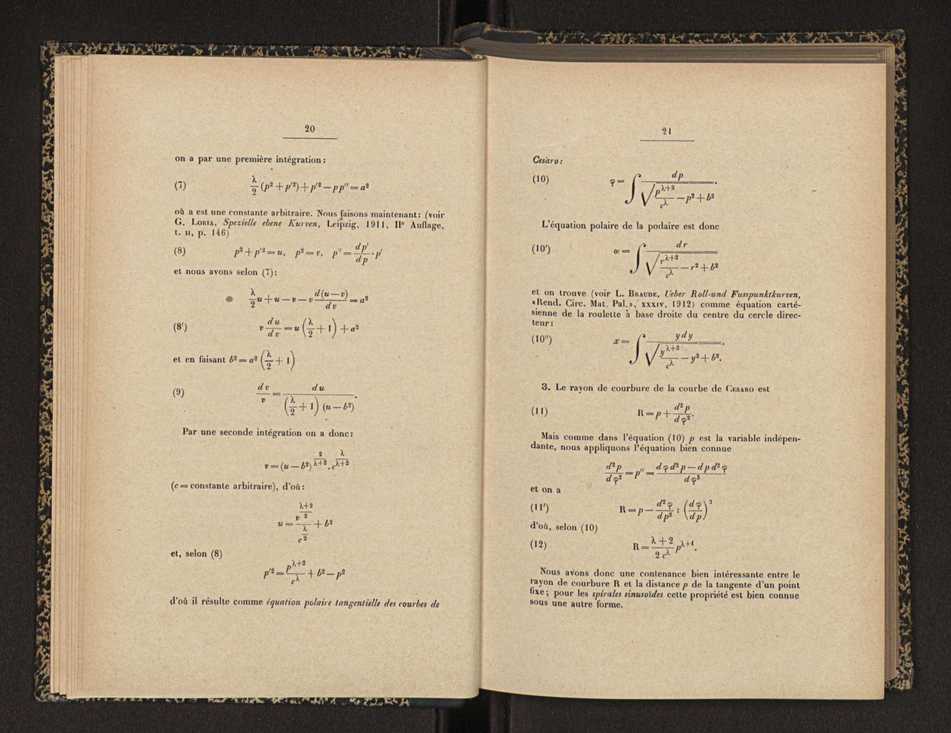 20
on a par une première intégration:
(7) λ/2 (p² + p'²) + p'² — pp'' = a²
où a est une constante arbitraire. Nous faisons maintenant: (voir
G. Loria, Spezielle ebene Kurven, Leipzig, 1911, IIe Auflage,
t. ii, p. 146)
(8) p² + p'² = u, p² = v, p'' = dp'/dp · p'
et nous avons selon (7):
λ/2 u + u — v — v d(u — v)/dv = a²
(8') v du/dv = u (λ/2 + 1) + a²
et en faisant b² = a² (λ/2 + 1)
(9) dv/v = du/((λ/2 + 1) (u — b²)).
Par une seconde intégration on a donc:
v = (u — b²)^(2/(λ+2)) . c^(λ/(λ+2))
(c = constante arbitraire), d'où:
u = v^((λ+2)/2)/c^(λ/2) + b²
et, selon (8)
p'² = p^(λ+2)/c^λ + b² — p²
d'où il résulte comme équation polaire tangentielle des courbes de
21
Cesàro:
(10) φ = ∫ dp/√(p^(λ+2)/c^λ — p² + b²).
L'équation polaire de la podaire est donc
(10') α = ∫ dr/√(r^(λ+2)/c^λ — r² + b²)
et on trouve (voir L. Braude, Ueber Roll-und Fusspunktkurven,
«Rend. Circ. Mat. Pal.», xxxiv, 1912) comme équation carté-
sienne de la roulette à base droite du centre du cercle direc-
teur:
(10'') x = ∫ ydy/√(y^(λ+2)/c^λ — y² + b²).
3. Le rayon de courbure de la courbe de Cesaro est
(11) R = p + d²p/dφ².
Mais comme dans l'équation (10) p est la variable indépen-
dante, nous appliquons l'équation bien connue
d²p/dφ² = p'' = (dφd²p — dpd²φ)/dφ³
et on a
(11') R = p — d²φ/dp² : (dφ/dp)³
d'où, selon (10)
(12) R = (λ + 2)/(2c^λ) p^(λ+1).
Nous avons donc une contenance bien intéressante entre le
rayon de courbure R et la distance p de la tangente d'un point
fixe; pour les spirales sinusoïdes cette propriété est bien connue
sous une autre forme.